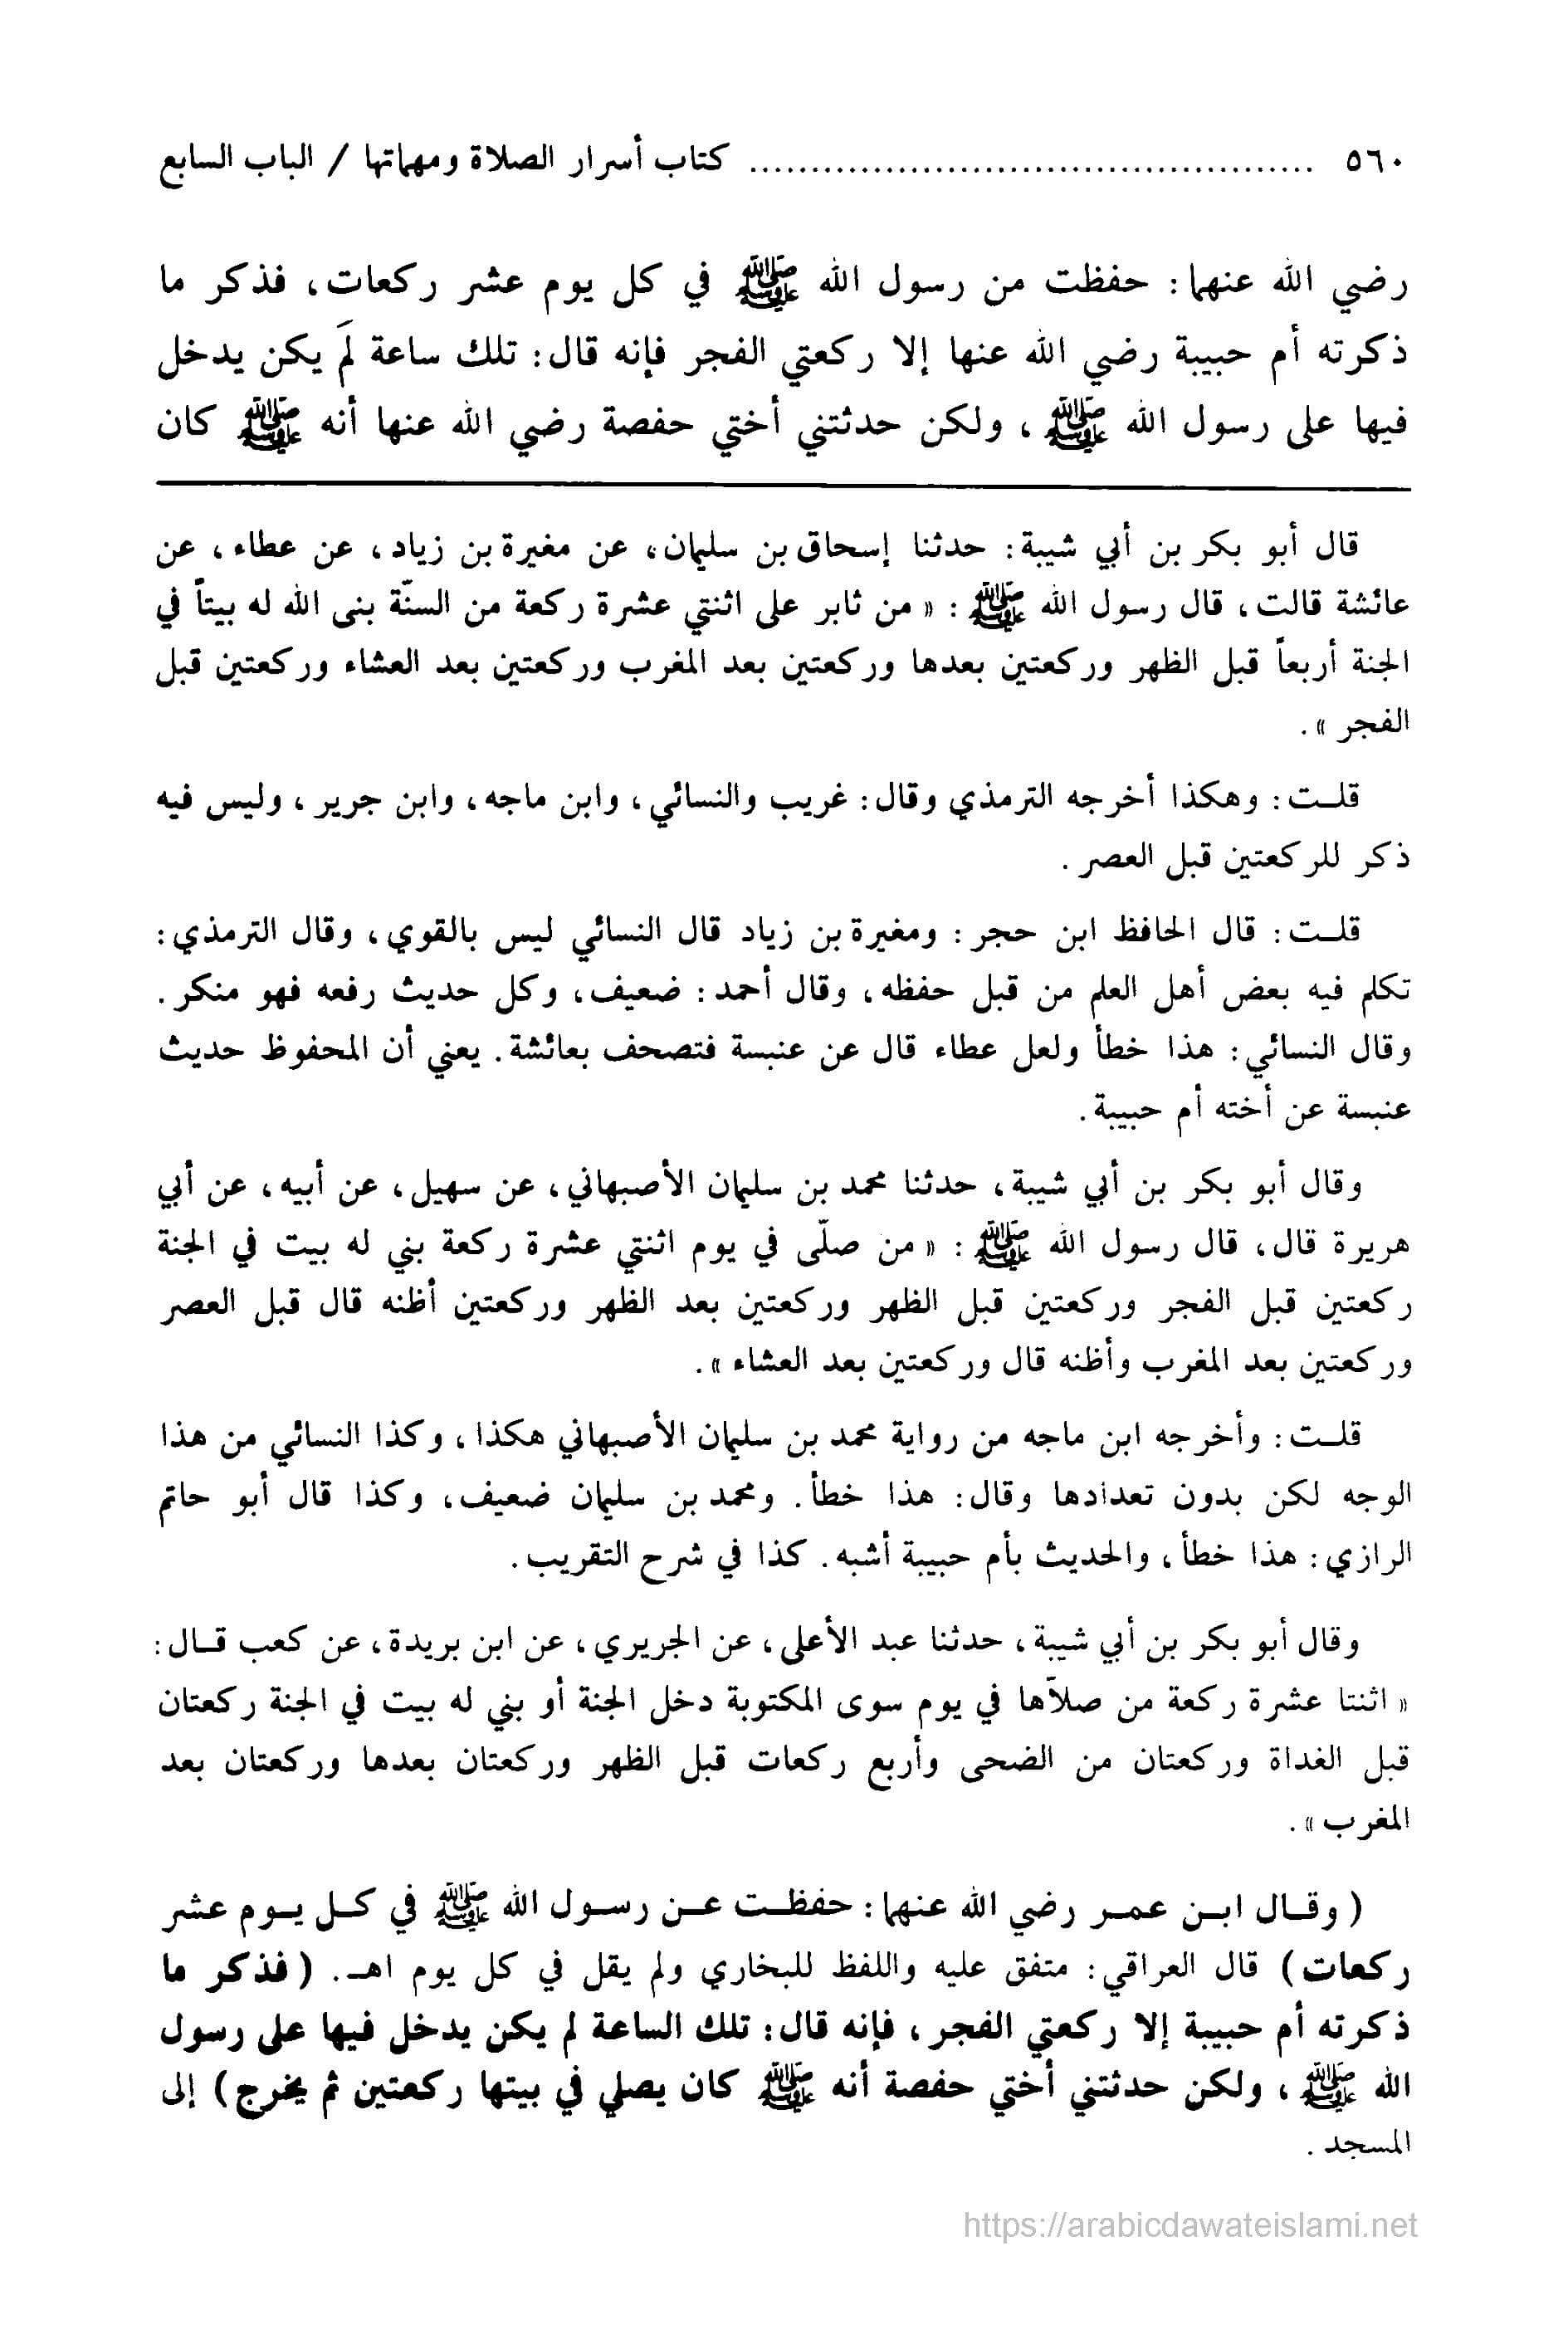 ٥٦٠ .............................................. كتاب أسرار الصلاة ومهماتها / الباب السابع
رضي الله عنهما: حفظت من رسول الله ﷺ في كل يوم عشر ركعات، فذكر ما
ذكرته أم حبيبة رضي الله عنها إلا ركعتي الفجر فإنه قال: تلك ساعة لَم يكن يدخل
فيها على رسول الله ﷺ ، ولكن حدثتني أختي حفصة رضي الله عنها أنه ﷺ كان
قال أبو بكر بن أبي شيبة: حدثنا إسحاق بن سليمان، عن مغيرة بن زياد، عن عطاء، عن
عائشة قالت، قال رسول الله ﷺ : « من ثابر على اثنتي عشرة ركعة من السنّة بنى الله له بيتاً في
الجنة أربعاً قبل الظهر وركعتين بعدها وركعتين بعد المغرب وركعتين بعد العشاء وركعتين قبل
الفجر ».
قلـت: وهكذا أخرجه الترمذي وقال: غريب والنسائي، وابن ماجه، وابن جرير، وليس فيه
ذكر للركعتين قبل العصر.
قلـت: قال الحافظ ابن حجر: ومغيرة بن زياد قال النسائي ليس بالقوي، وقال الترمذي:
تكلم فيه بعض أهل العلم من قبل حفظه، وقال أحمد: ضعيف، وكل حديث رفعه فهو منكر.
وقال النسائي: هذا خطأ ولعل عطاء قال عن عنبسة فتصحف بعائشة. يعني أن المحفوظ حديث
عنبسة عن أخته أم حبيبة.
وقال أبو بكر بن أبي شيبة، حدثنا محمد بن سليمان الأصبهاني، عن سهيل، عن أبيه، عن أبي
هريرة قال، قال رسول الله ﷺ : « من صلّى في يوم اثنتي عشرة ركعة بني له بيت في الجنة
ركعتين قبل الفجر وركعتين قبل الظهر وركعتين بعد الظهر وركعتين أظنه قال قبل العصر
وركعتين بعد المغرب وأظنه قال وركعتين بعد العشاء ».
قلـت: وأخرجه ابن ماجه من رواية محمد بن سليمان الأصبهاني هكذا، وكذا النسائي من هذا
الوجه لكن بدون تعدادها وقال: هذا خطأ. ومحمد بن سليمان ضعيف، وكذا قال أبو حاتم
الرازي: هذا خطأ، والحديث بأم حبيبة أشبه. كذا في شرح التقريب.
وقال أبو بكر بن أبي شيبة، حدثنا عبد الأعلى، عن الجريري، عن ابن بريدة، عن كعب قـال:
« اثنتا عشرة ركعة من صلاّها في يوم سوى المكتوبة دخل الجنة أو بني له بيت في الجنة ركعتان
قبل الغداة وركعتان من الضحى وأربع ركعات قبل الظهر وركعتان بعدها وركعتان بعد
المغرب ».
( وقـال ابـن عمـر رضي الله عنهما: حفظـت عـن رسـول الله ﷺ في كـل يـوم عشر
ركعات ) قال العراقي: متفق عليه واللفظ للبخاري ولم يقل في كل يوم اهـ. ( فذكر ما
ذكرته أم حبيبة إلا ركعتي الفجر، فإنه قال: تلك الساعة لم يكن يدخل فيها على رسول
الله ﷺ ، ولكن حدثتني أختي حفصة أنه ﷺ كان يصلي في بيتها ركعتين ثم يخرج ) إلى
المسجد.
https://arabicdawateislami.net